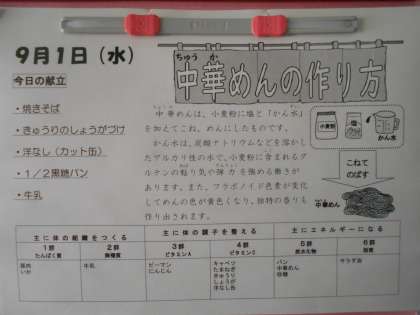 9月1日（水）
今日の献立
・焼きそば
・きゅうりのしょうがづけ
・洋なし（カット缶）
・1／2黒糖パン
・牛乳
ちゅう か
中華めんの作り方
中華めんは、小麦粉に塩と「かん水」
を加えてこね、めんにしたものです。
かん水は、炭酸ナトリウムなどを溶かし
たアルカリ性の水で、小麦粉に含まれるグル
テンの粘り気や弾力を強める働きが
あります。また、フラボノイド色素が変化
してめんの色が黄色くなり、独特の香りも
作り出されます。
小麦粉
塩
かん水
こねて
のばす
中華めん
主に体の組織をつくる
主に体の調子を整える
主にエネルギーになる
1群
たんぱく質
2群
無機質
3群
ビタミンA
4群
ビタミンC
5群
炭水化物
6群
脂質
豚肉
いか
牛乳
ピーマン
にんじん
キャベツ
たまねぎ
きゅうり
しょうが
洋なし缶
パン
中華めん
砂糖
サラダ油